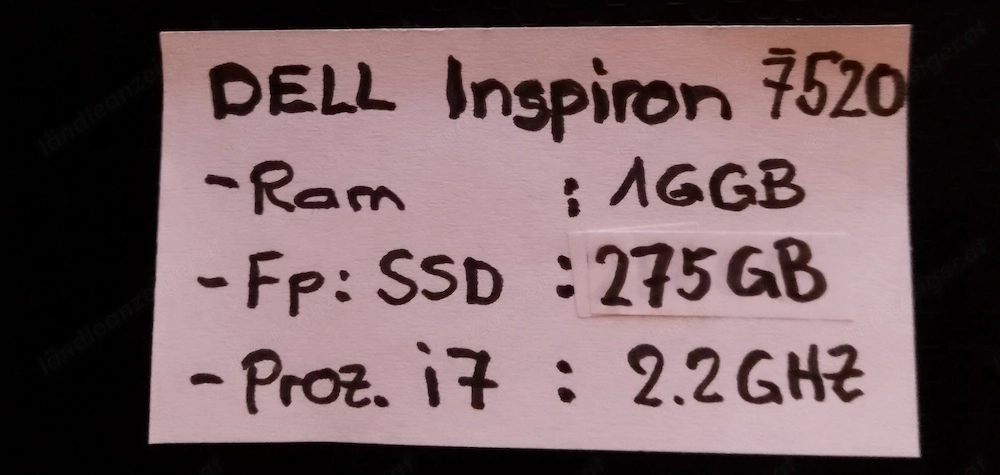 DELL Inspiron 7520
- Ram : 16GB
- Fp: SSD : 275GB
- Proz. i7 : 2.2GHZ